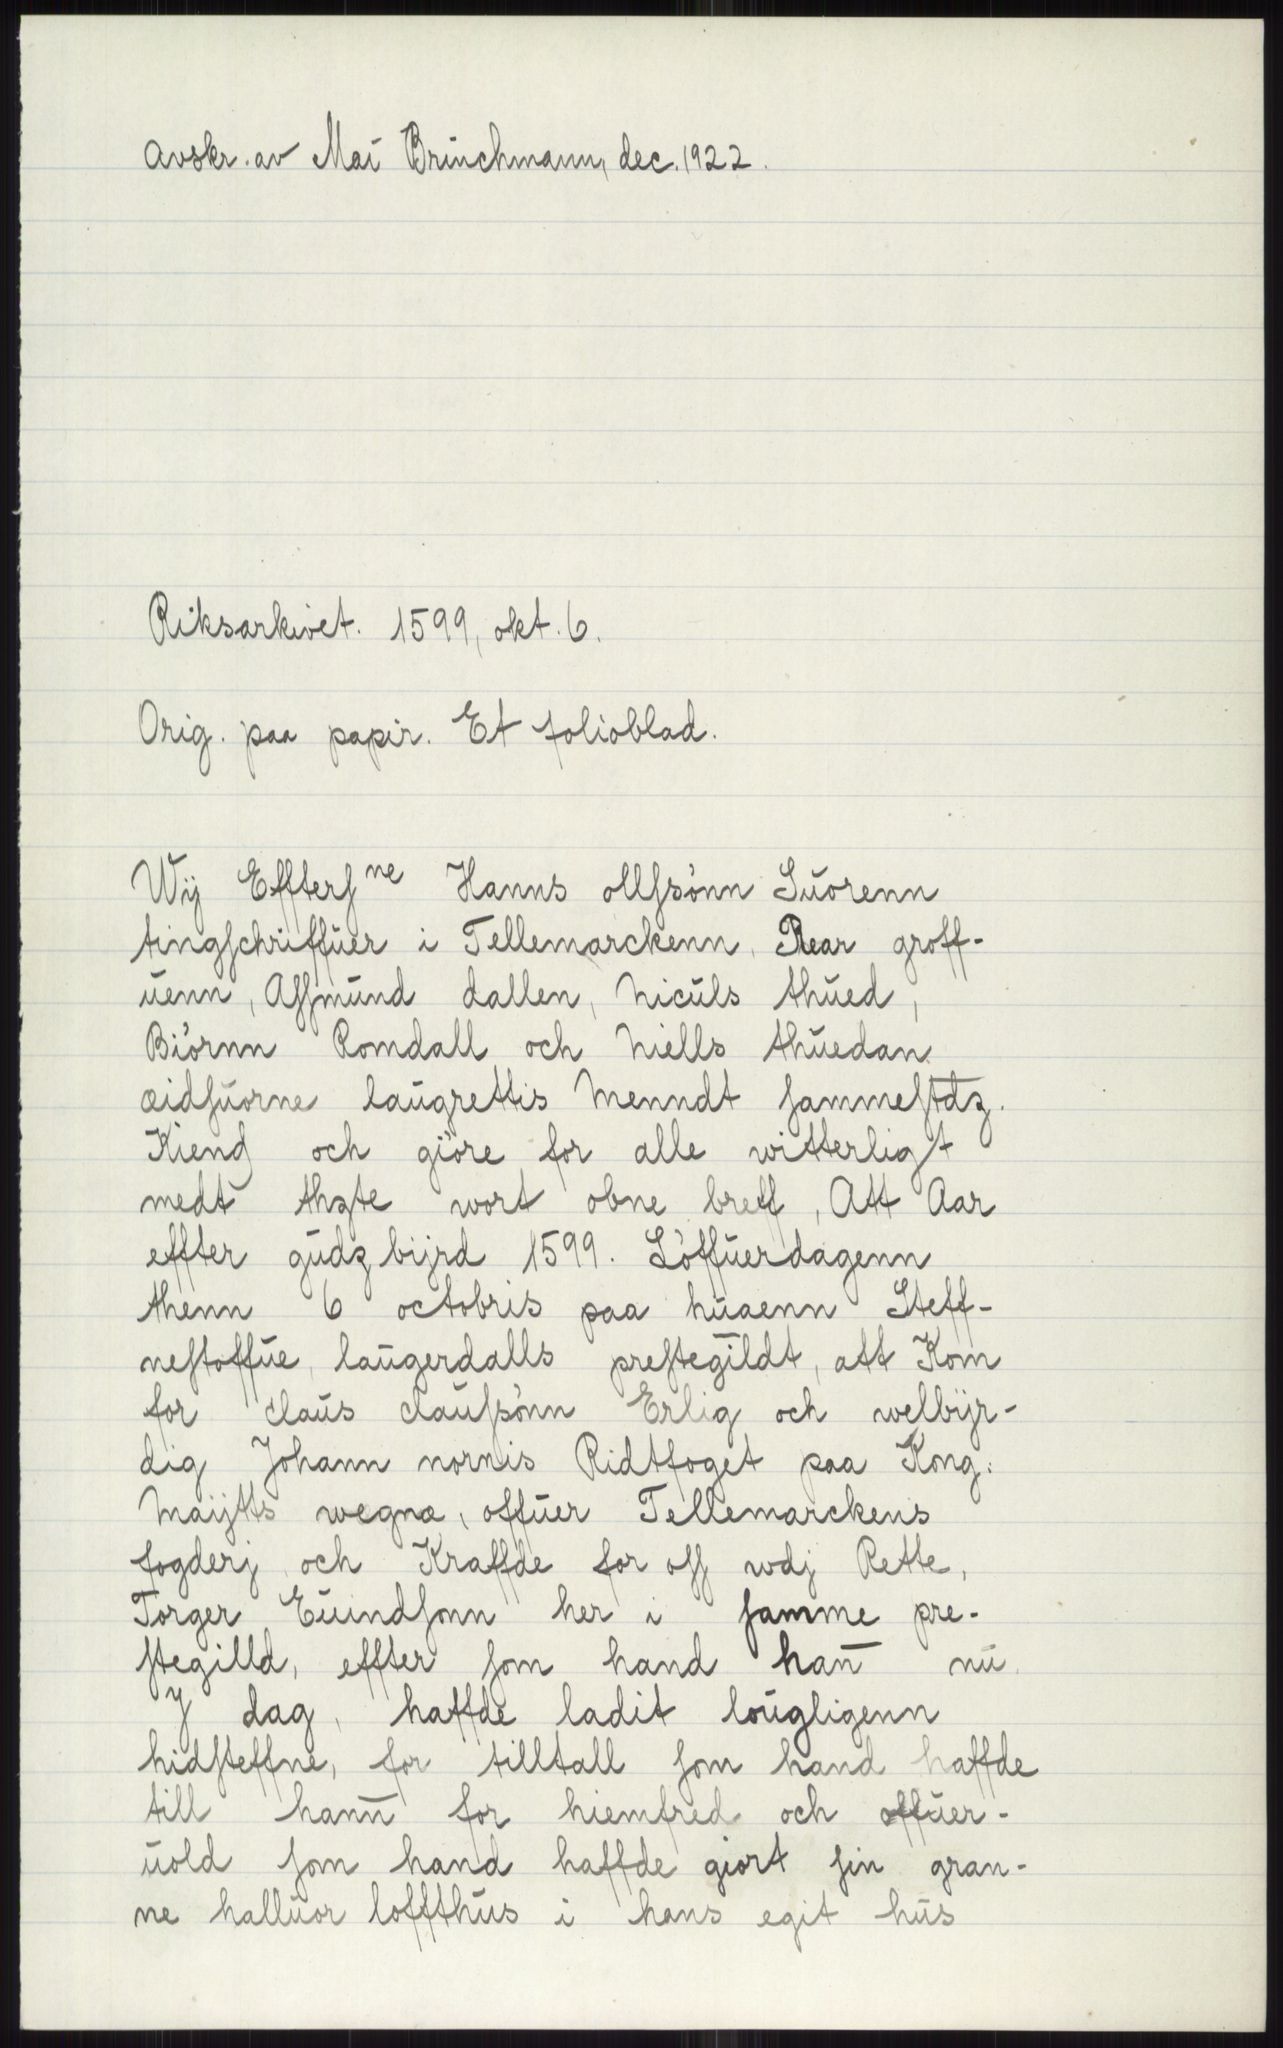 Avskr. av Mai Brinchmann, dec. 1922.
Riksarkivet. 1599, okt. 6.
Orig. paa papir. Et folioblad.
Wij Effterſne Hanns ollſsønn Suorenn
tingſchriffuer i Tellemarckenn, Rear groff-
uenn, Aſſmund dallen, Niculs thued,
Biørnn Romdall och Niells thuedan
æidſuorne laugrettis Menndt ſammeſtdz.
Kiend och giöre for alle witterligſt
medt thzte wort obne breff, Att Aar
effter gudz bijrd 1599. Löffuerdagenn
thenn 6 octobris paa huaenn Steff-
neſtoffue, laugerdalls preſtegildt, att Kom
for claus clauſsønn Erlig och welbijr-
dig Johann nornis Ridtfoget paa Kong:
Maijtts wegnæ, offuer Tellemarckens
fogderj och Kraffde for oſſ wdj Rette,
Torger Euindſonn her i ſamme pre-
ſtegilld, effter ſom hand hañ nu
J dag, haffde ladit lougligenn
hidſteffne, for tilltall ſom hand haffde
till hanñ for hiemfred och offuer-
uold ſom hand haffde giort ſin gran-
ne halluor loffthus i hans egit hus